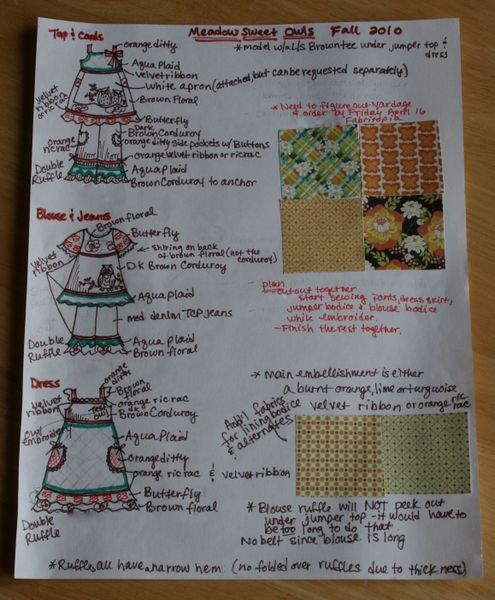 Meadow Sweet Owls Fall 2010
Top & Cords
orange ditty
* model w/ALLS Brown tee under jumper top & dress
Aqua Plaid
Velvet ribbon
White apron (attached, but can be requested separately)
Brown Floral
Velvet ribbon or ric rac
Butterfly
Dark
Brown Corduroy
orange ditty side pockets w/ Buttons
orange ric rac
orange velvet ribbon or ricrac
Double Ruffle
Aqua plaid
Brown Corduroy to anchor
* Need to figure out Yardage
& order by Friday April 16
Fabritopia
Blouse & Jeans
Brown floral
Butterfly
Shiring on back of brown floral (not the corduroy)
Velvet ribbon
D.K. Brown Corduroy
Aqua Plaid
med denim TCP Jeans
Double Ruffle
Aqua Plaid
Brown floral
plan
- cut out together
start sewing pants, dress skirt,
jumper bodice & blouse bodice
while embroider.
- Finish the rest together.
Dress
orange ditty
Velvet ribbon
Brown floral
orange ric rac
dk
Brown Corduroy
Owl Embroider
Aqua Plaid
orange ditty
orange ric rac & velvet ribbon
Butterfly
Brown floral
Double Ruffle
* Main embellishment is either
a burnt orange, lime or turquoise
velvet ribbon or orange ric rac
Add'l fabrics
for lining bodice
& alternates
* Blouse ruffle will NOT peek out
under jumper top - it would have to
be too long to do that
No belt since blouse is long
* Ruffles all have a narrow hem (no folded over ruffles due to thickness)